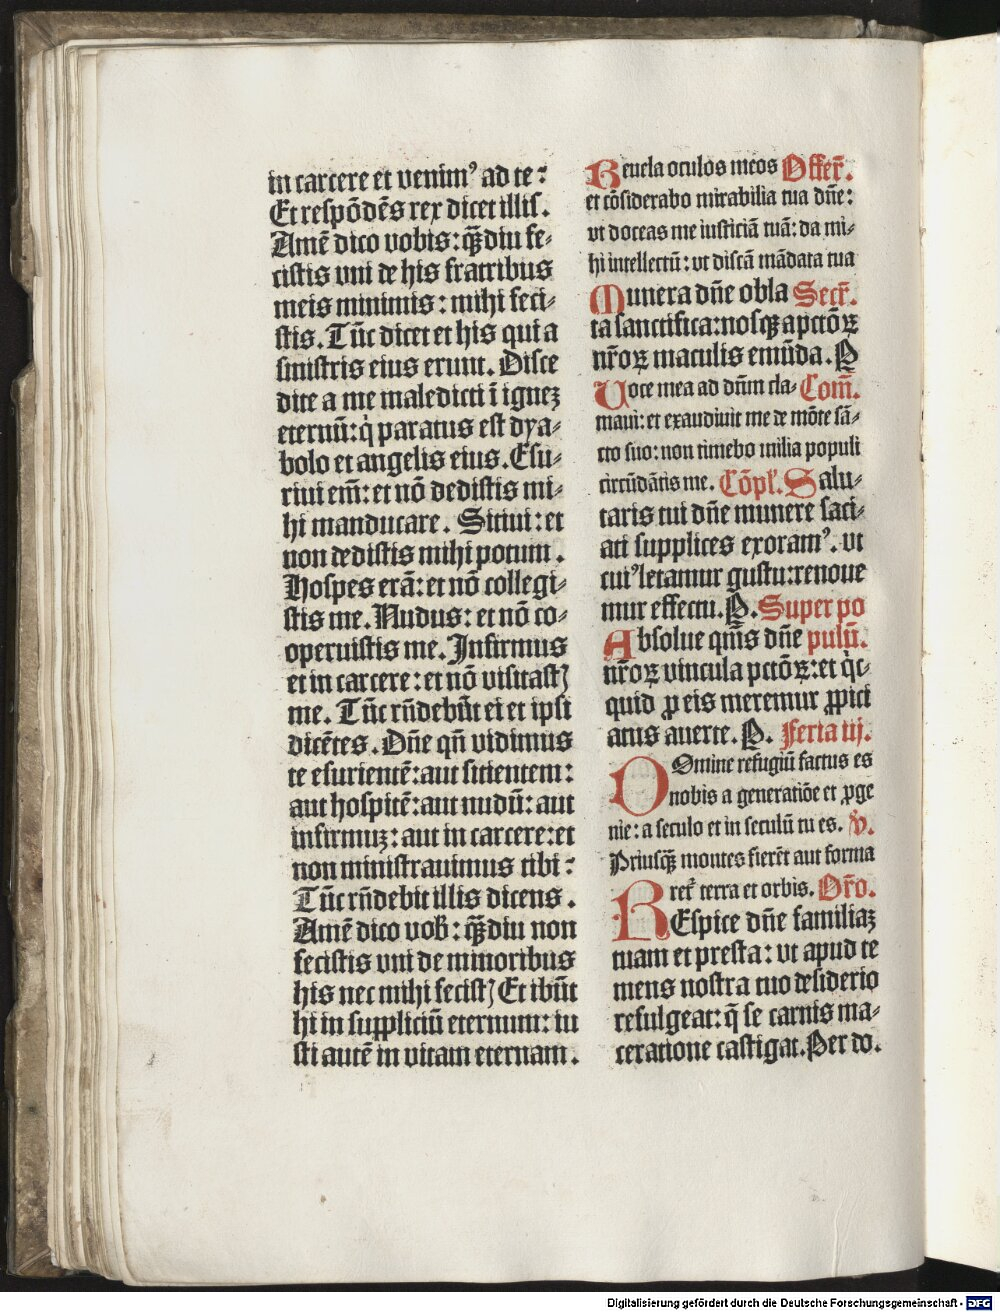 in carcere et venimꝰ ad te:
Et respōdēs rex dicet illis.
Amē dico vobis: qͣ̄diu fe-
cistis vni de his fratribus
meis minimis: mihi feci-
stis. Tūc dicet et his qui a
sinistris eius erunt. Disce
dite a me maledicti ī ignez
eternū: q̇ paratus est dya-
bolo et angelis eius. Esu-
riui em̄: et nō dedistis mi-
hi manducare. Sitiui: et
non dedistis mihi potum.
Hospes erā: et nō collegi-
stis me. Nudus: et nō co-
operuistis me. Infirmus
et in carcere: et nō visitastꝭ
me. Tūc rn̄debūt ei et ipsi
dicētes. Dn̄e qn̄ vidimus
te esurientē: aut sitientem:
aut hospitē: aut nudū: aut
infirmuz: aut in carcere: et
non ministrauimus tibi:
Tūc rn̄debit illis dicens.
Amē dico vob̄: qͣ̄diu non
fecistis vni de minoribus
his nec mihi fecistꝭ Et ibūt
hi in suppliciū eternum: iu
sti autē in vitam eternam.
Reuela oculos meos Offer̄.
et cōsiderabo mirabilia tua dn̄e:
vt doceas me iusticiā tuā: da mi-
hi intellectū: vt discā mādata tua
Munera dn̄e obla Secr̄.
ta sanctifica: nosqꝫ a pctōꝝ
nr̄oꝝ maculis emūda. P̄
Uoce mea ad dn̄m cla- Com̄.
maui: et exaudiuit me de mōte sā-
cto suo: non timebo milia populi
circūdātis me. Cōpl̄. Salu-
taris tui dn̄e munere saci-
ati supplices exoramꝰ. vt
cuiꝰ letamur gustu: renoue
mur effectu. P̄. Super po
Absolue qm̄s dn̄e pulū.
nr̄oꝝ vincula pctōꝝ: et q̇c-
quid ꝓ eis meremur ꝓpici
atus auerte. P̄. Feria iij.
DOmine refugiū factus es
nobis a generatiōe et ꝓge
nie: a seculo et in seculū tu es. v̄.
Priusqͣ̄ montes fierēt aut forma
ret̄ terra et orbis. Or̄o.
REspice dn̄e familiaz
tuam et presta: vt apud te
mens nostra tuo desiderio
refulgeat: q̄ se carnis ma-
ceratione castigat. Per do.
Digitalisierung gefördert durch die Deutsche Forschungsgemeinschaft - DFG